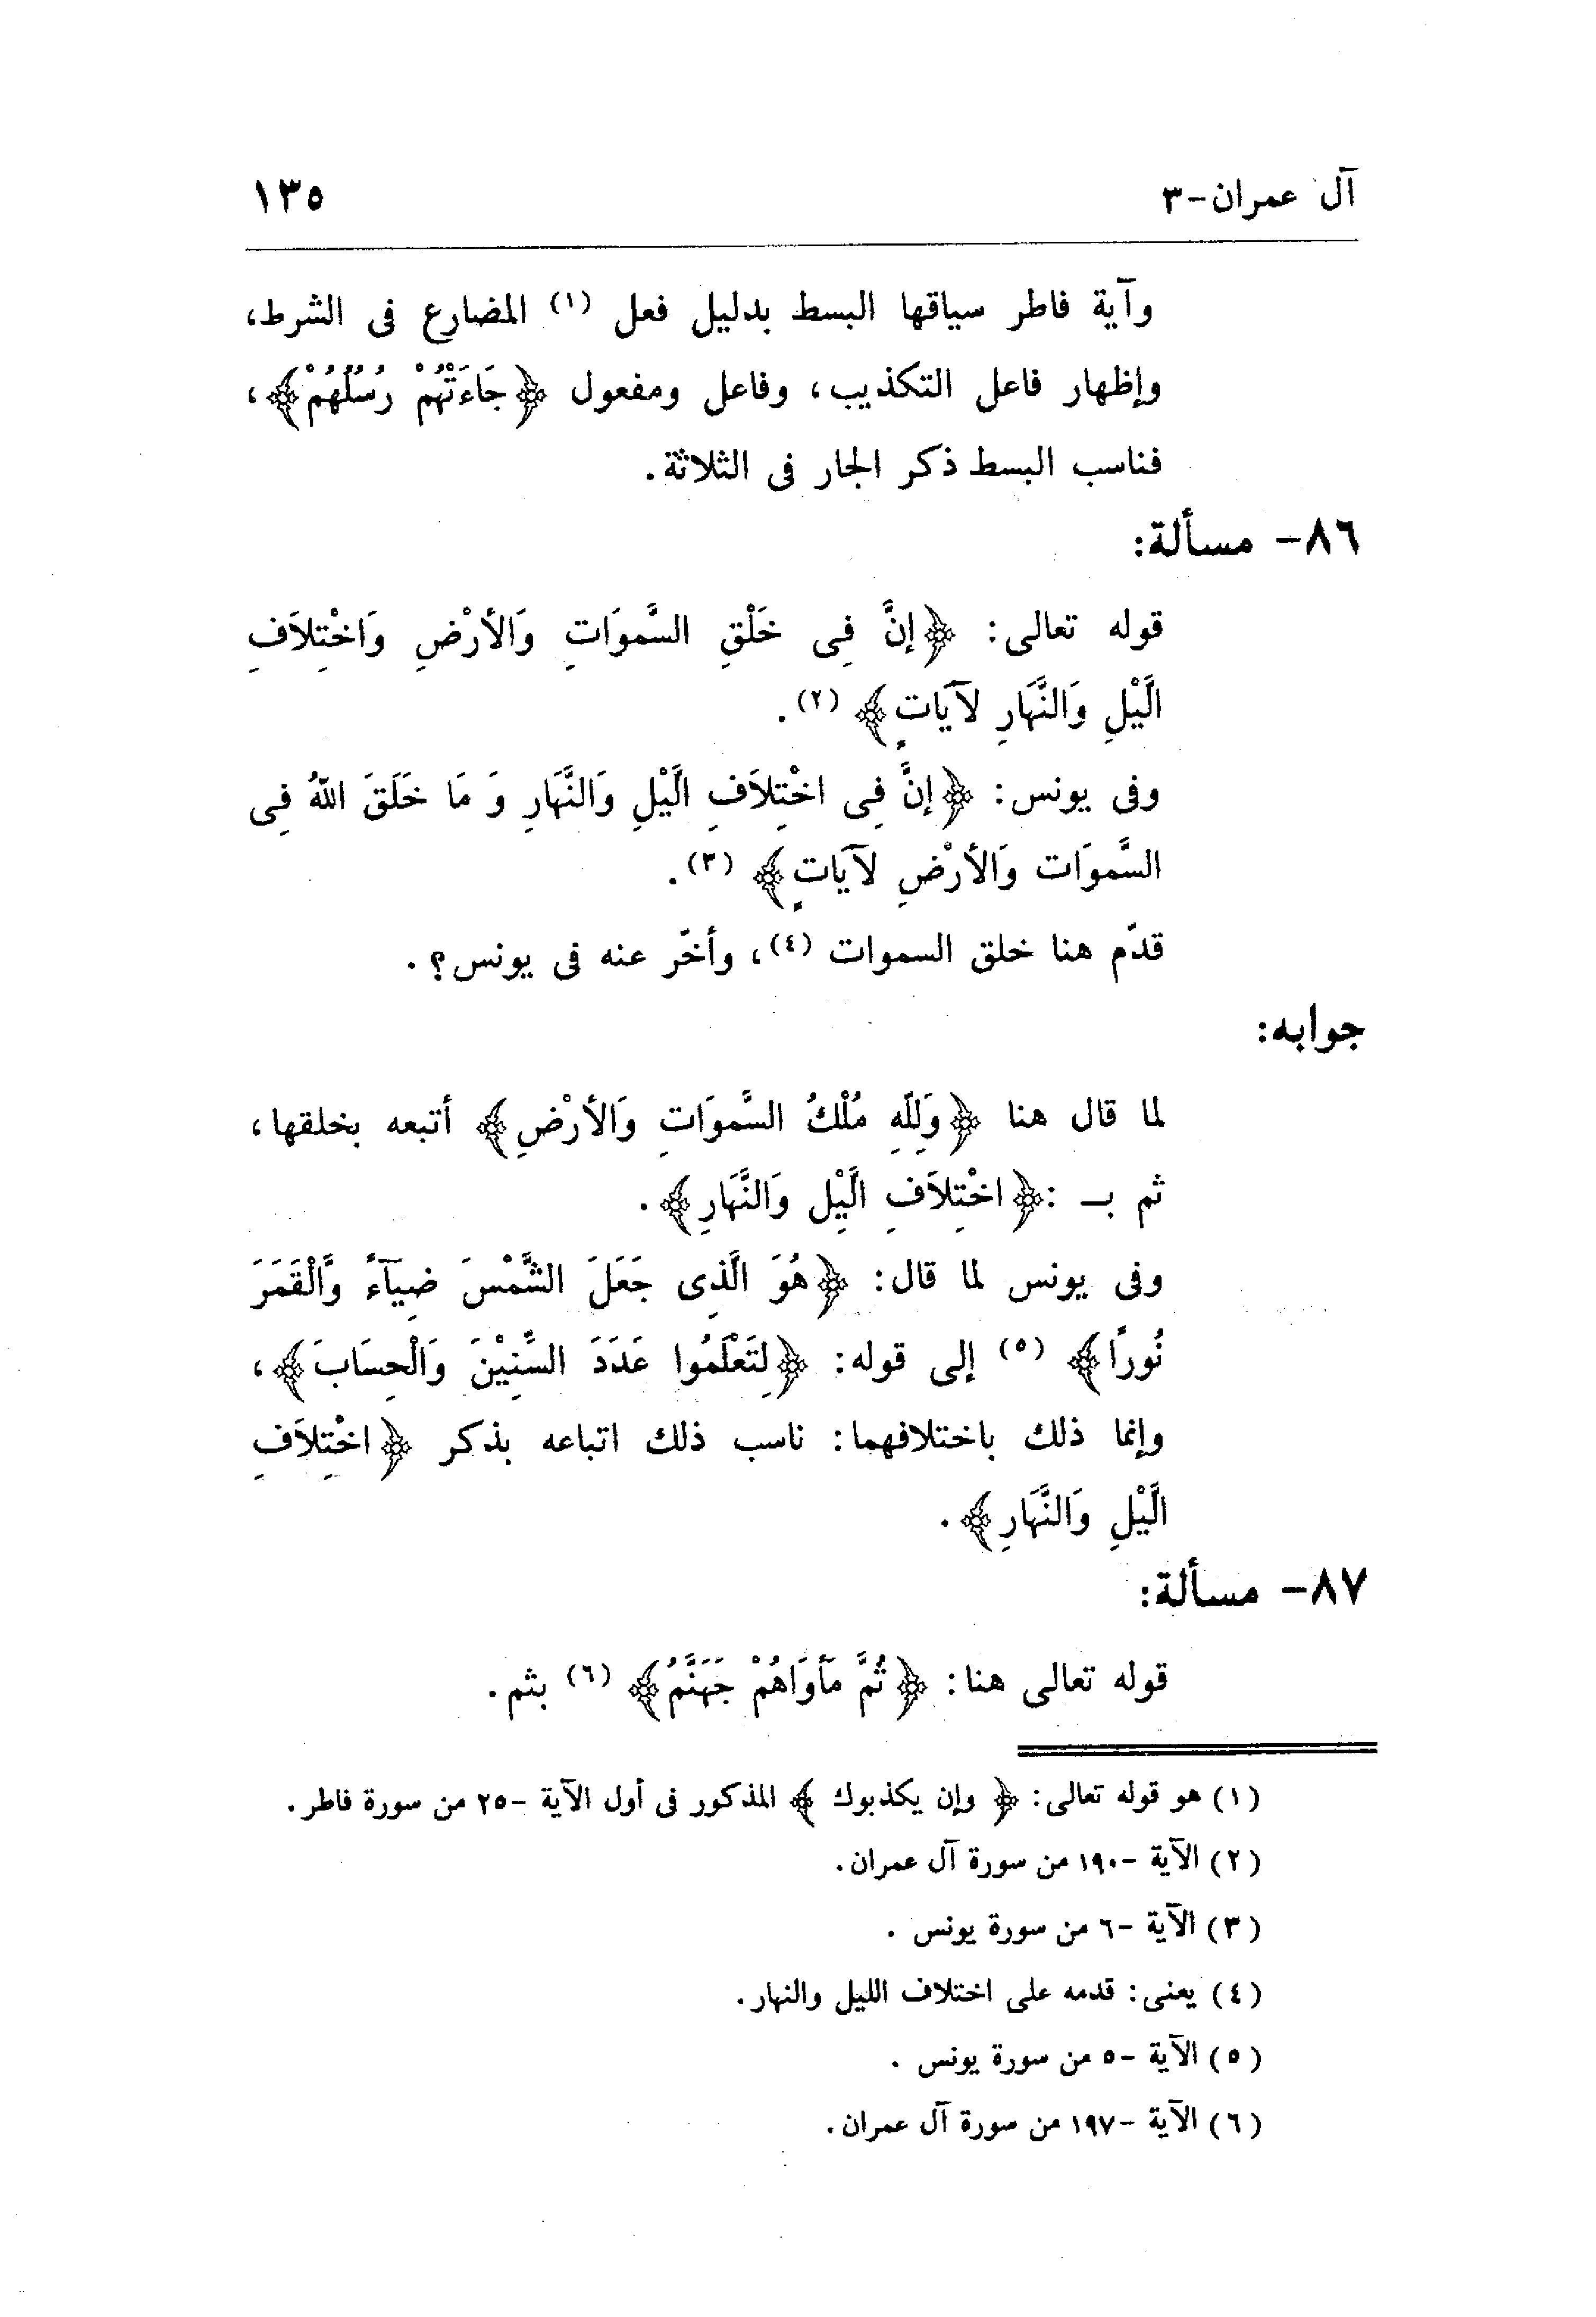 آل عمران-٣ ١٣٥
وآية فاطر سياقها البسط بدليل فعل (١) المضارع فى الشرط،
وإظهار فاعل التكذيب، وفاعل ومفعول ﴿جَاءَتْهُمْ رُسُلُهُمْ﴾،
فناسب البسط ذكر الجار فى الثلاثة.
٨٦- مسألة:
قوله تعالى: ﴿إنَّ فِى خَلْقِ السَّموَاتِ وَالأرْضِ وَاخْتِلاَفِ
الَّيْلِ وَالنَّهَارِ لآيَاتٍ﴾ (٢).
وفى يونس: ﴿إنَّ فِى اخْتِلاَفِ الَّيْلِ وَالنَّهَارِ وَ مَا خَلَقَ اللهُ فِى
السَّموَات وَالأرْضِ لآيَاتٍ﴾ (٣).
قدّم هنا خلق السموات (٤)، وأخّر عنه فى يونس؟.
جوابه:
لما قال هنا ﴿وَلِلّهِ مُلْكُ السَّموَاتِ وَالأرْضِ﴾ أتبعه بخلقها،
ثم بـ :﴿اخْتِلاَفِ الَّيْلِ وَالنَّهَارِ﴾.
وفى يونس لما قال: ﴿هُوَ الَّذِى جَعَلَ الشَّمْسَ ضِيَآءً وَّالْقَمَرَ
نُوراً﴾ (٥) إلى قوله: ﴿لِتَعْلَمُوا عَدَدَ السِّنِيْنَ وَالْحِسَابَ﴾،
وإنما ذلك باختلافهما: ناسب ذلك اتباعه بذكر ﴿اخْتِلاَفِ
الَّيْلِ وَالنَّهَارِ﴾.
٨٧- مسألة:
قوله تعالى هنا: ﴿ثُمَّ مَأوَاهُمْ جَهَنَّمُ﴾ (٦) بثم.
(١) هو قوله تعالى: ﴿ وإن يكذبوك ﴾ المذكور فى أول الآية -٢٥ من سورة فاطر.
(٢) الآية -١٩٠ من سورة آل عمران.
(٣) الآية -٦ من سورة يونس .
(٤) يعنى: قدمه على اختلاف الليل والنهار.
(٥) الآية -٥ من سورة يونس .
(٦) الآية -١٩٧ من سورة آل عمران.